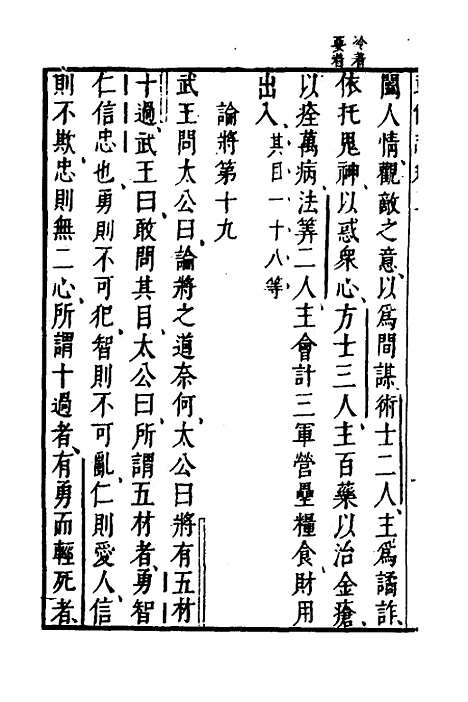 冷着
要着
闔人情觀敵之意以爲間諜術士二人主爲譎詐
依托鬼神以惑衆心方士三人主百藥以治金瘡
以痊萬病法筭二人主會計三軍營壘糧食財用
出入其目一十八等
論將第十九
武王問太公曰論將之道奈何太公曰將有五材
十過武王曰敢問其目太公曰所謂五材者勇智
仁信忠也勇則不可犯智則不可亂仁則愛人信
則不欺忠則無二心所謂十過者有勇而輕死者